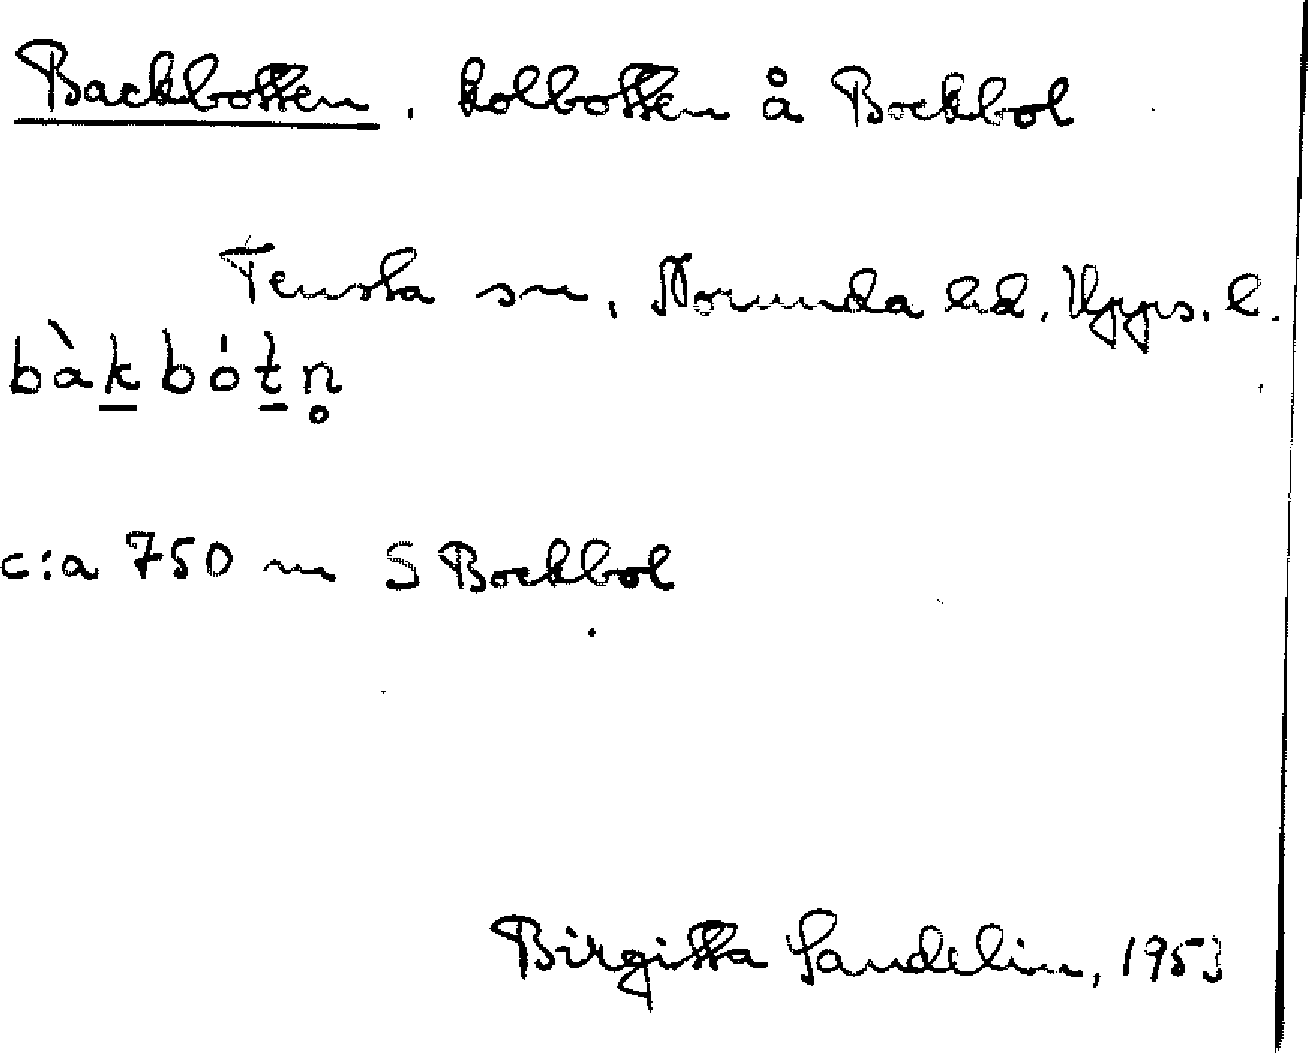 Backbotten. kolbotten å Bockbol
Tensta sn, Norunda hd, Upps. l.
bàk̲bót̲n̥
c:a 750 m S Bockbol
Birgitta Sandelin, 1953